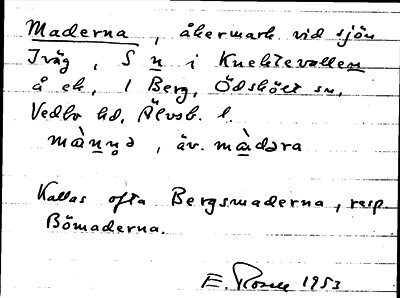 Maderna, åkermark vid sjön
Iväg, S n i Knektevallen
å ek, 1 Berg, Ödskölt sn,
Vedbo hd, Älvsb. l.
mànnə, äv. màdəra
Kallas ofta Bergsmaderna, resp
Bömaderna.
E. Rosell 1953